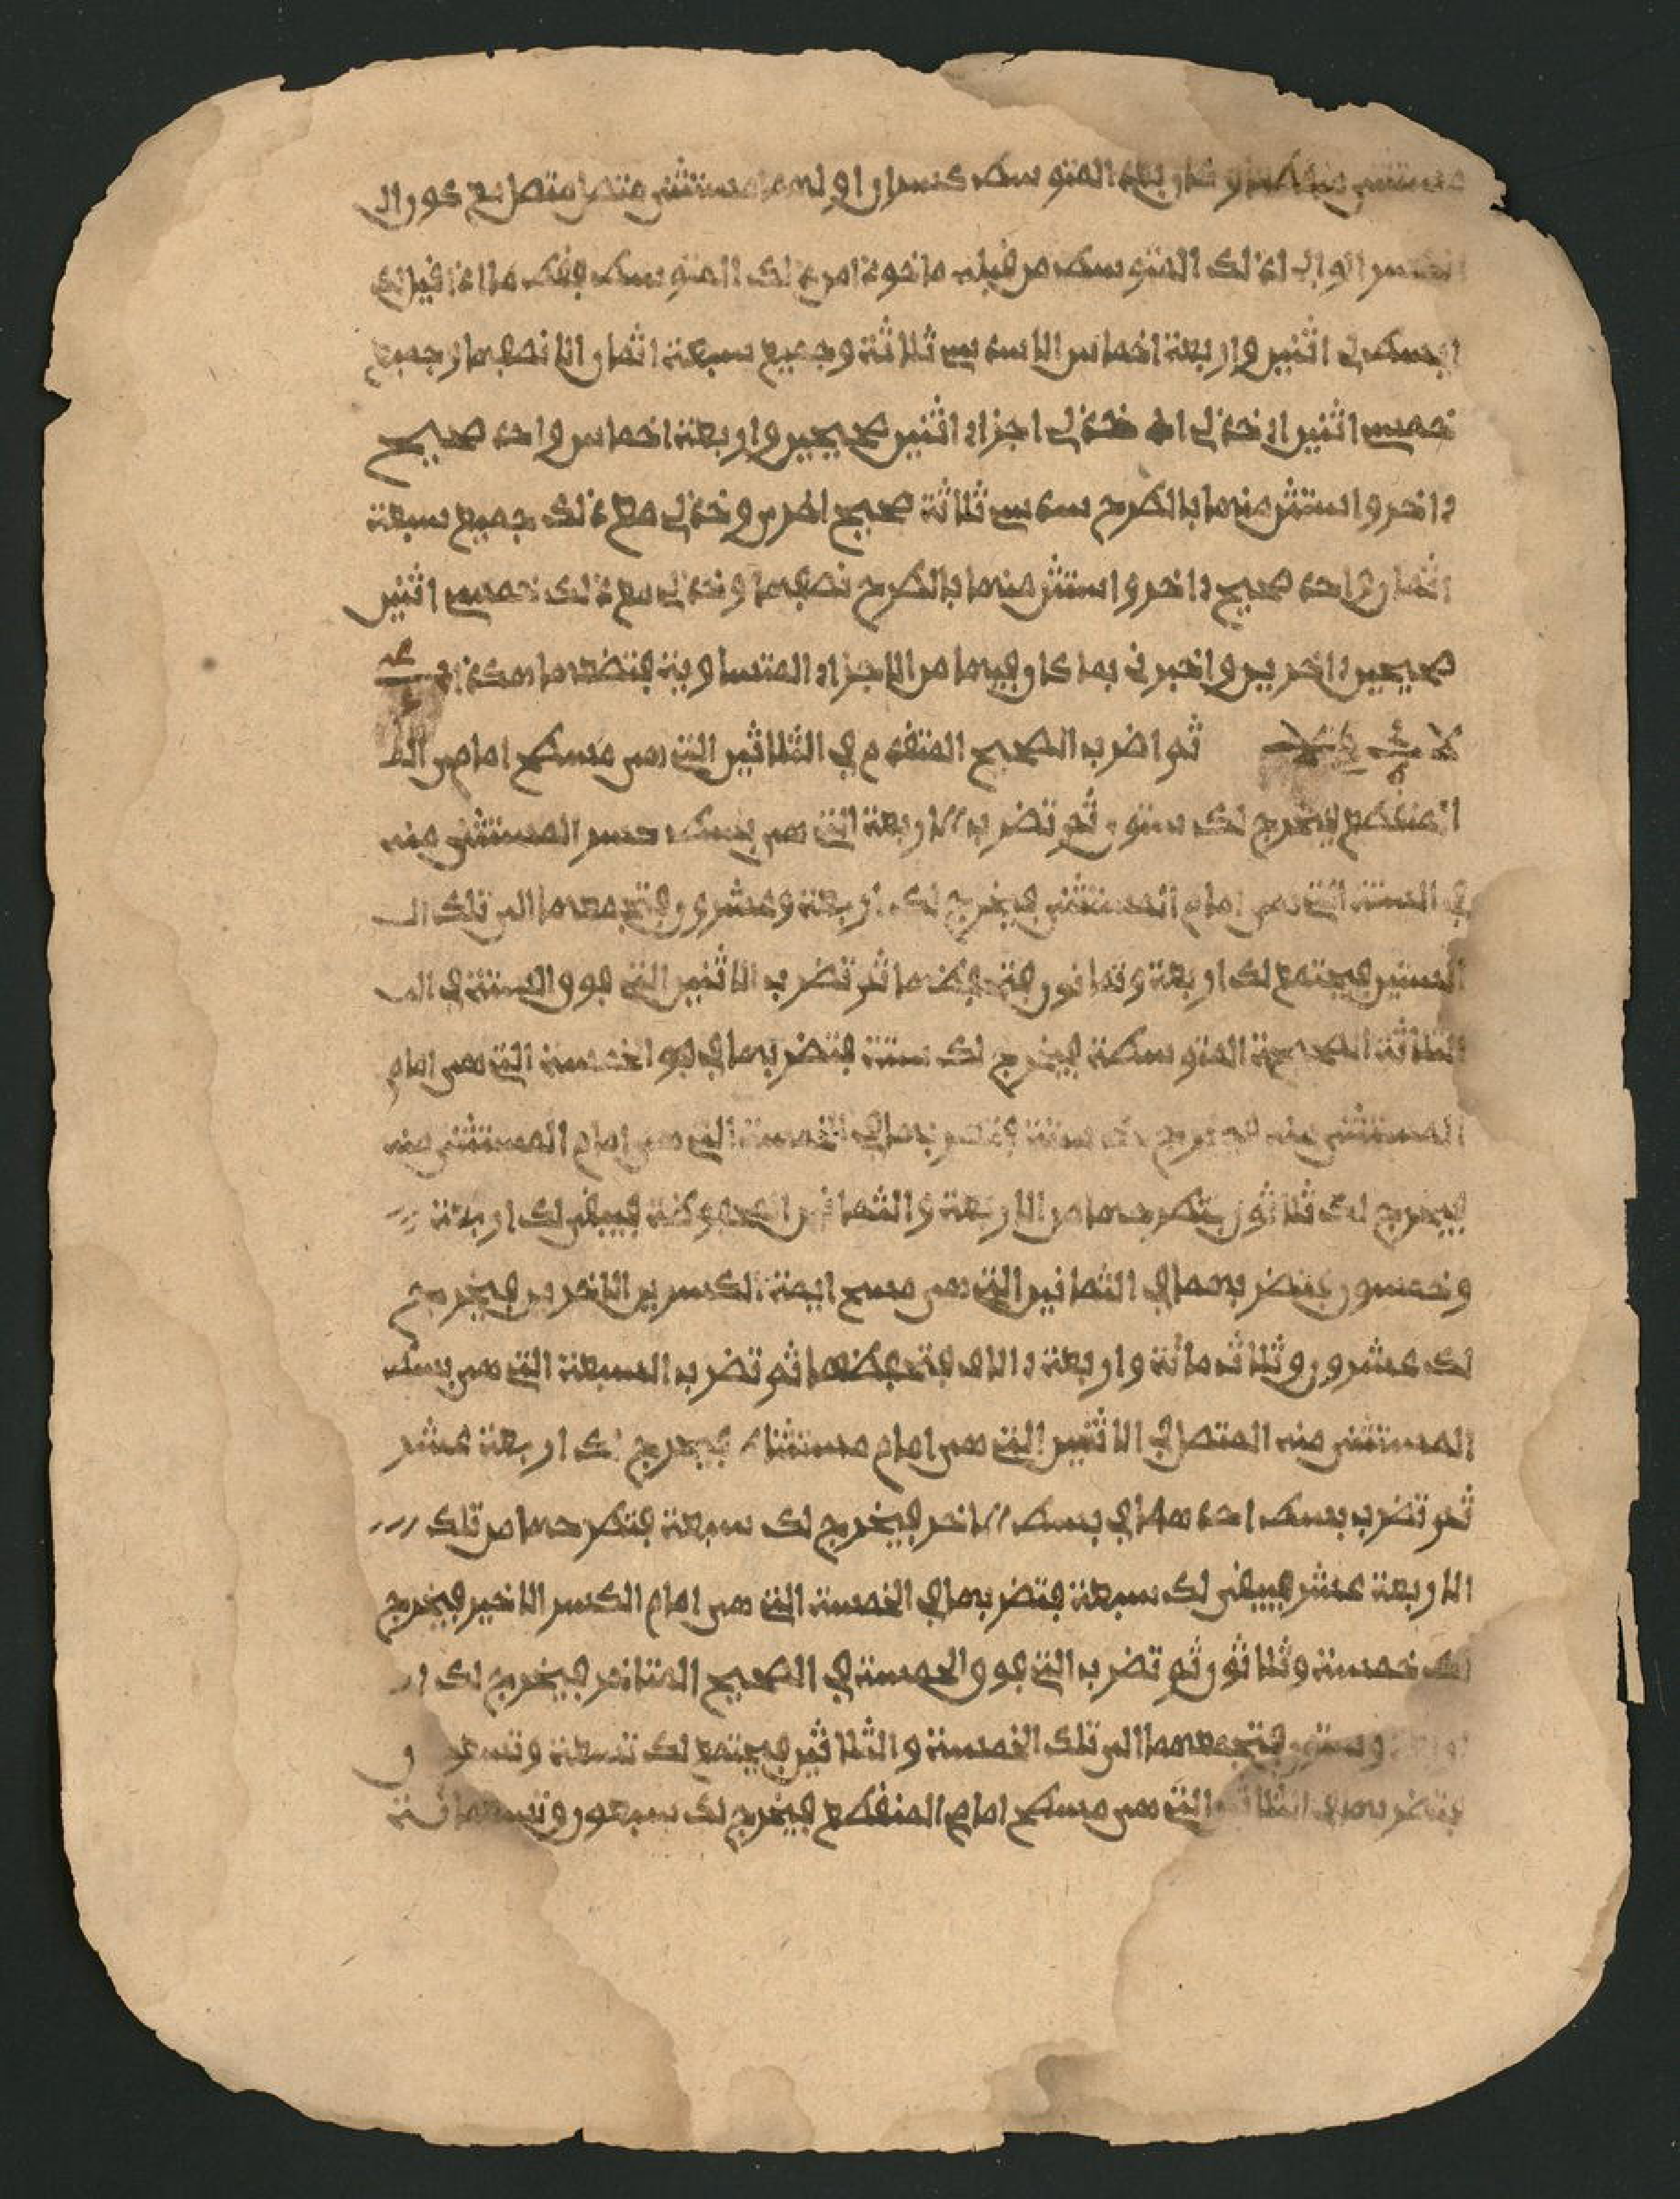 مستثنى منقطعا و كان بعد المتوسط كسران اولهما مستثنى متصل متصل مع كون ال
الكسر الوالى لذلك المتوسط من قبله ماخوذا من ذلك المتوسط فقط ما اذا قيل لك
ابسط لى اثنين واربعة اخماس الا سدس ثلاثة وجميع سبعة اثمان الا نصفها وجميع
خمس اثنين اى خذ لى اجزاء اثنين صحيحين واربعة اخماس واحد صحيح
ءاخر واستثن منها بالطرح سدس ثلاثة صحيح اخرى وخذ لى مع ذلك جميع سبعة
اثمان واحد صحيح ءاخر واستثن منها بالطرح نصفها وخذ لى مع ذلك خمس اثنين
صحيحين ءاخرين واخبرنى بما كان فيهما من الاجزاء المتساوية فتضعها هكذا
ثم اضرب الصحيح المتقدم في الثلاثين التى هى مسطح امام ال
المنقطع فيخرج لك ستون ثم تضرب الاربعة التى هى بسط كسر المستثنى منه
في الستة التى هى امام المستثنى فيخرج لك اربعة وعشرون فتجمعها الى تلك ال
الستين فيجتمع لك اربعة وثمانون فتحفظها ثم تضرب الاثنين التى فوق الستة في ال
الثلاثة الصحيحة المتوسطة فيخرج لك ستة فتضربها في فوق الخمسة التى هى امام
المستثنى منه فيخرج لك ستة فتضربها في الخمسة التى هى امام المستثنى منه
فيخرج لك ثلاثون فتطرحها من الاربعة والثمانين المحفوظة فيبقى لك اربعة
وخمسون فتضربها في الثمانين التى هى مسطح ايمة الكسرين الاخرين فيخرج
لك عشرون وثلاث مائة واربعة ءالاف فتحفظها ثم تضرب السبعة التى هى بسط
المستثنى منه المتصل في الاثنين التى هى امام مستثناه فيخرج لك اربعة عشر
ثم تضرب بسط احدهما في بسط الاخر فيخرج لك سبعة فتطرحها من تلك
الاربعة عشر فيبقى لك سبعة فتضربها في الخمسة التى هى امام الكسر الاخير فيخرج
لك خمسة وثلاثون ثم تضرب التى فوق الخمسة في الصحيح المتاخر فيخرج لك ار
اربعة وستون فتجمعها الى تلك الخمسة والثلاثين فيجتمع لك تسعة وتسعون
فتضربها في الثلاثين التى هى مسطح امام المنقطع فيخرج لك سبعون وتسعمائة